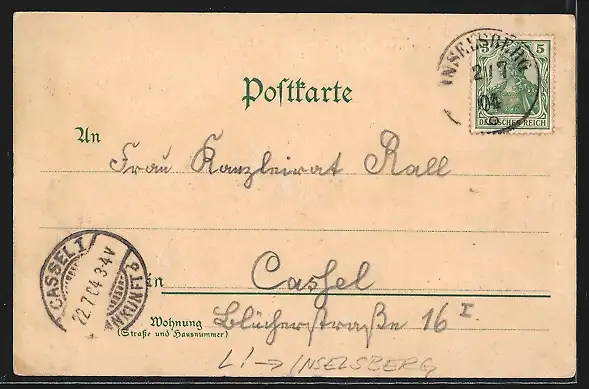 INSELSBERG
21 7
04
5 5
DEUTSCHES REICH
Postkarte
An
Frau Kanzleirat Rall
CASSEL 1
22.7.04 3-4V
ANKUNFT P
in
Cassel
Wohnung
(Straße und Hausnummer)
Blücherstraße 16 I
L! → INSELSBERG